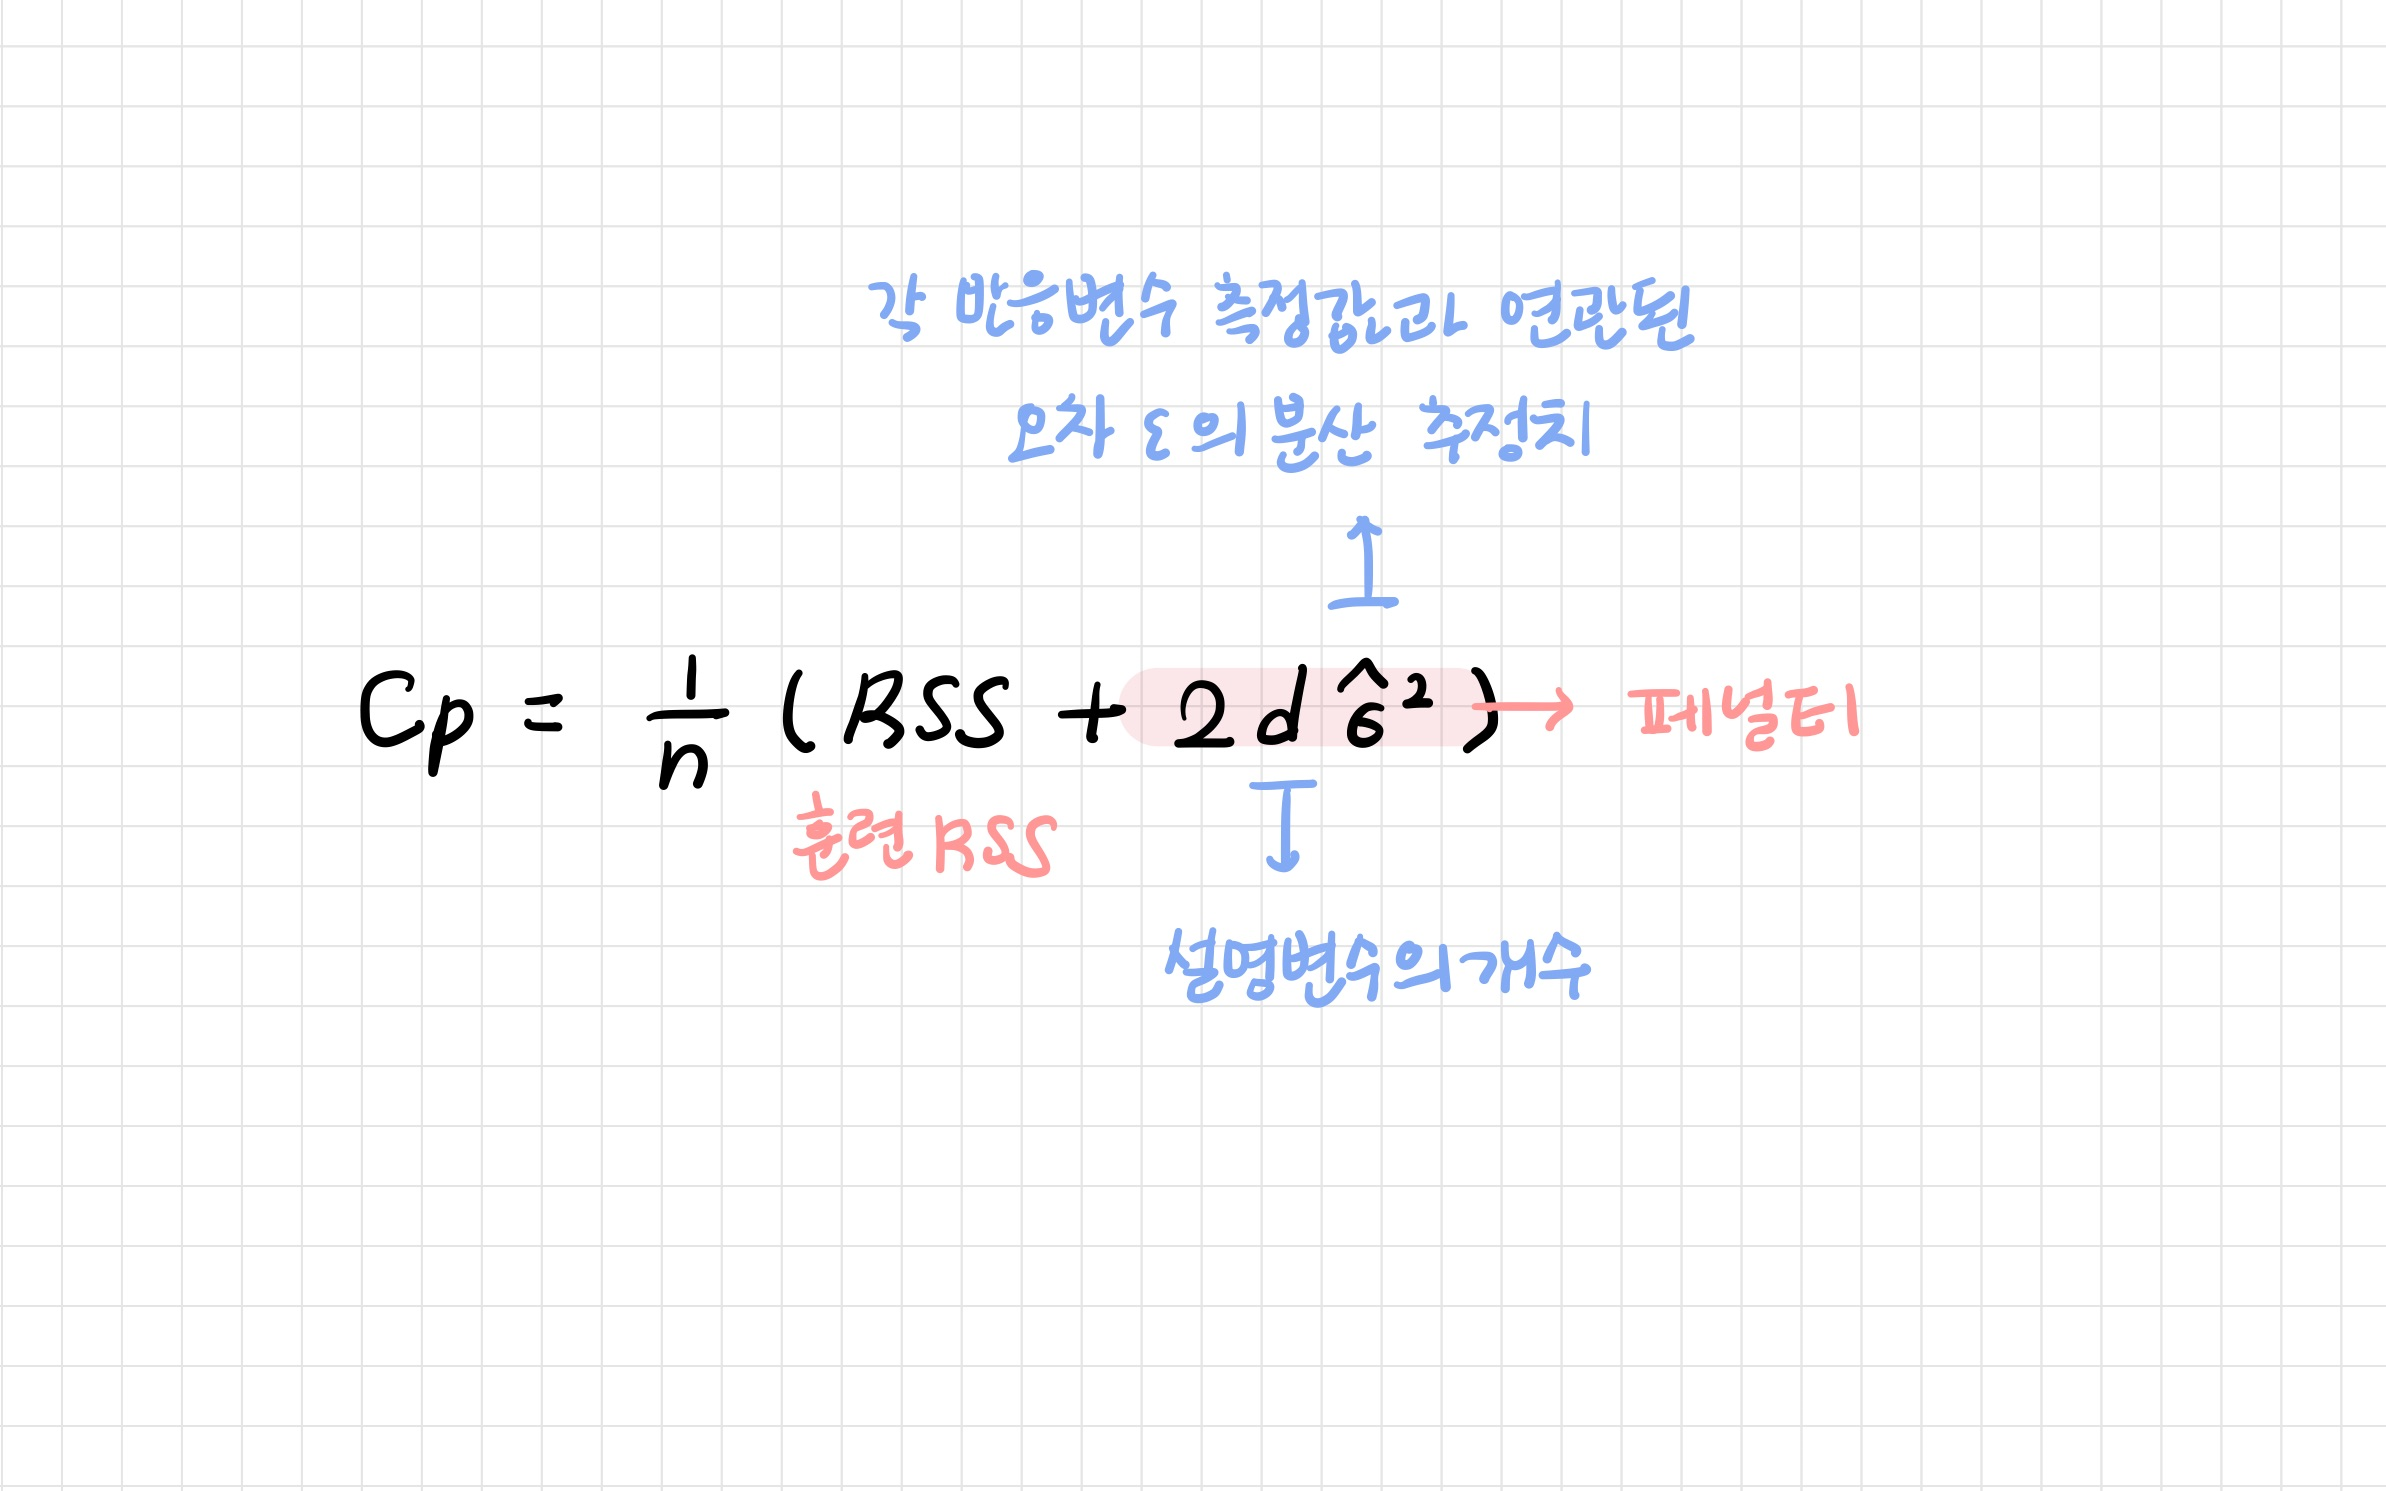 각 반응변수 측정값과 연관된
오차 ε의 분산 추정치
Cp = 1/n (RSS + 2dσ̂²) → 페널티
훈련 RSS
설명변수의 개수